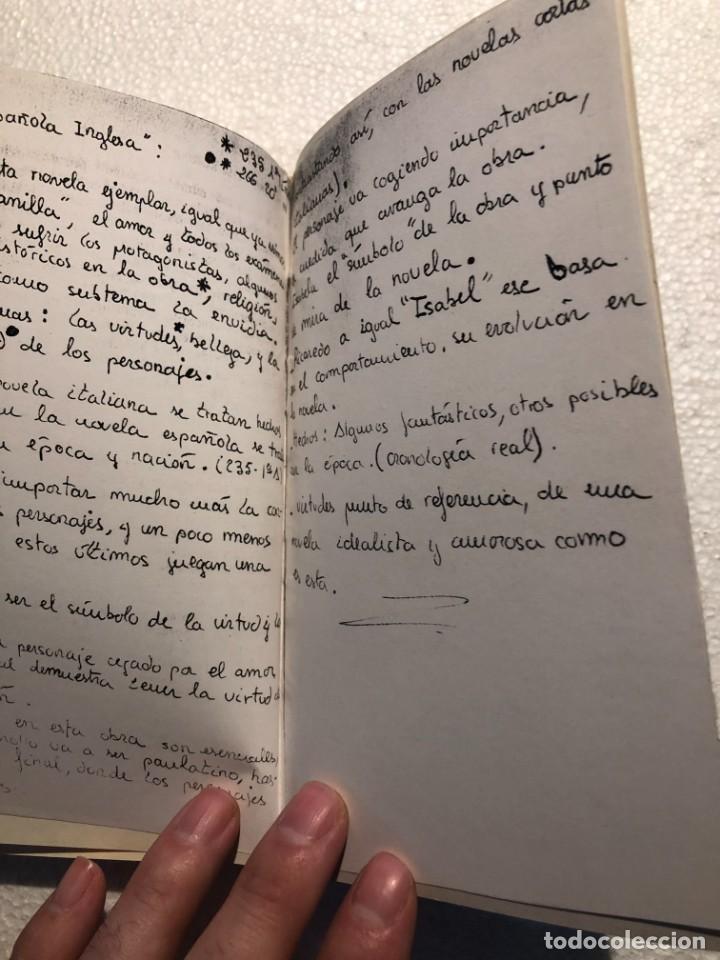 pañola Inglesa":
* 235 1ª
●* 266 20
ta novela ejemplar, igual que ya
amilla", el amor y todos los
sufrir los protagonistas, algunos
istóricos en la obra*, religión,
como subtema la envidia.
mas: las virtudes,* belleza, y la
● de los personajes.
novela italiana se tratan hechos
la novela española se
época y nación. (235-1ª
importar mucho más la
personajes, y un poco menos
estos últimos juegan una
ser el símbolo de la virtud y la
personaje cegado por el amor
demuestra tener la virtud
en esta obra son esenciales,
va a ser paulatino, has-
final, donde los personajes
así, con las novelas cortas
italianas).
personaje va cogiendo importancia,
medida que avanza la obra.
Isabela el "símbolo" de la obra y punto
mira de la novela.
Ricaredo a igual "Isabel" ese basa
el comportamiento. su evolución en
novela.
Hechos: Algunos fantásticos, otros posibles
en la época. (cronología real).
. virtudes punto de referencia, de una
novela idealista y amorosa como
es esta.
todocoleccion